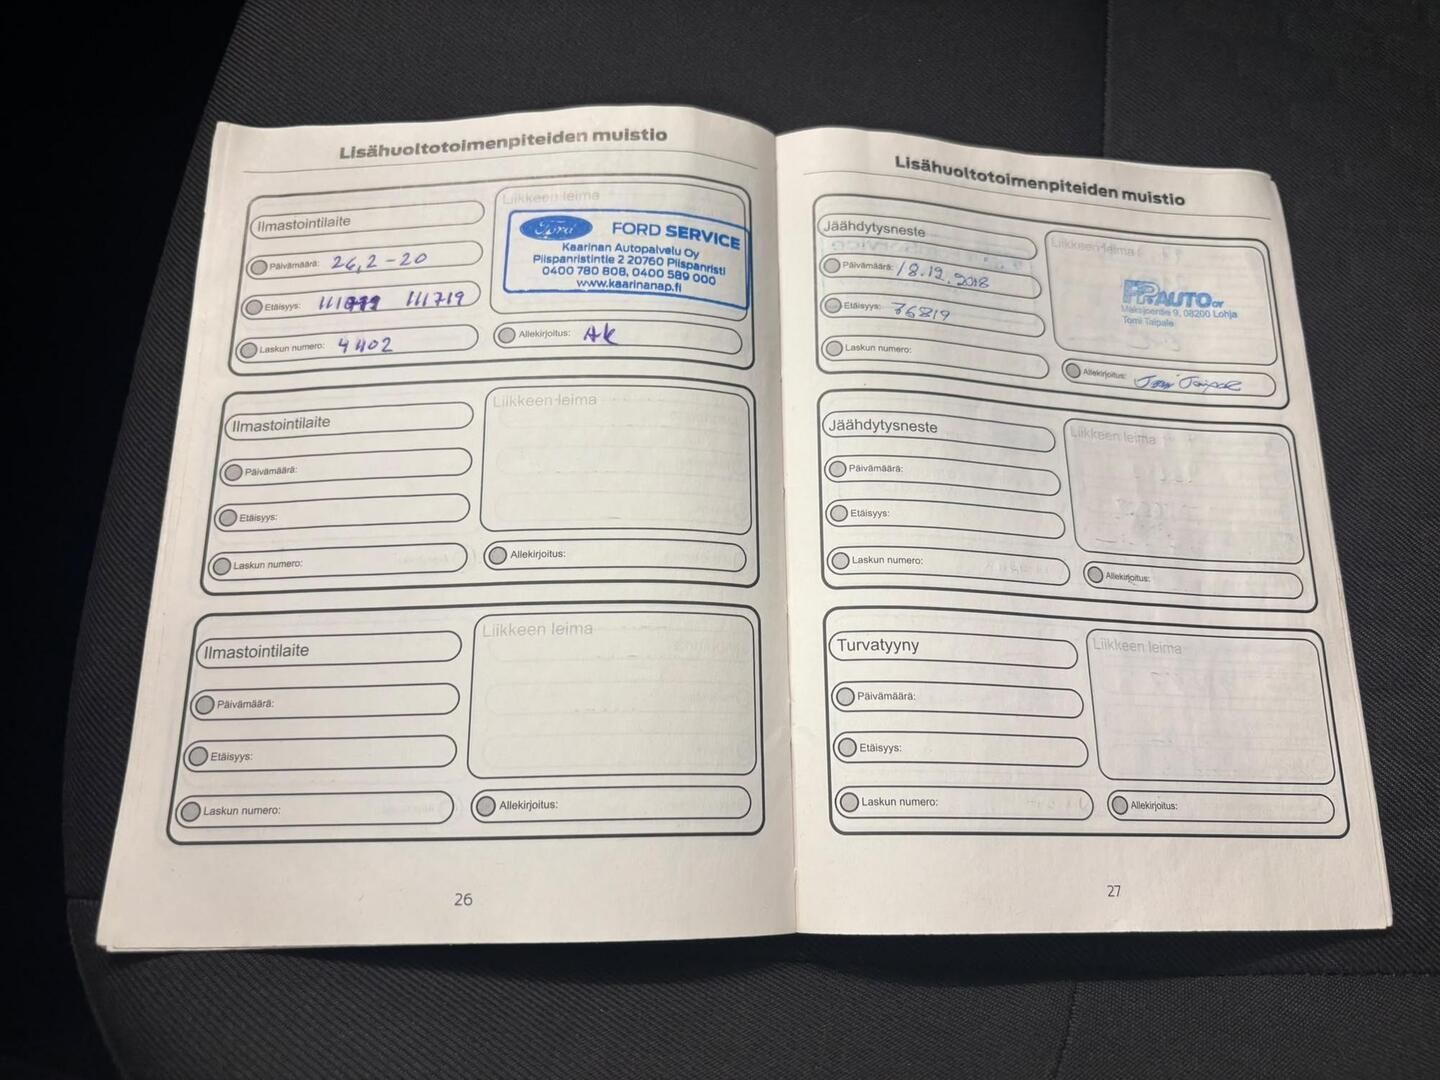 Lisähuoltotoimenpiteiden muistio
Ilmastointilaite
Liikkeen leima
Ford FORD SERVICE
Kaarinan Autopalvelu Oy
Piispanristintie 2 20760 Piispanristi
0400 780 808, 0400 589 000
www.kaarinanap.fi
Päivämäärä: 26,2-20
Etäisyys: 111719
Laskun numero: 4402
Allekirjoitus: AK
Ilmastointilaite
Liikkeen leima
Päivämäärä:
Etäisyys:
Laskun numero:
Allekirjoitus:
Ilmastointilaite
Liikkeen leima
Päivämäärä:
Etäisyys:
Laskun numero:
Allekirjoitus:
26
Lisähuoltotoimenpiteiden muistio
Jäähdytysneste
Liikkeen leima
Päivämäärä: 18.12.2018
Etäisyys: 76819
Laskun numero:
PRAUTO OY
Maksjoentie 9, 08200 Lohja
Tomi Taipale
Allekirjoitus: Tomi Taipale
Jäähdytysneste
Liikkeen leima
Päivämäärä:
Etäisyys:
Laskun numero:
Allekirjoitus:
Turvatyyny
Liikkeen leima
Päivämäärä:
Etäisyys:
Laskun numero:
Allekirjoitus:
27